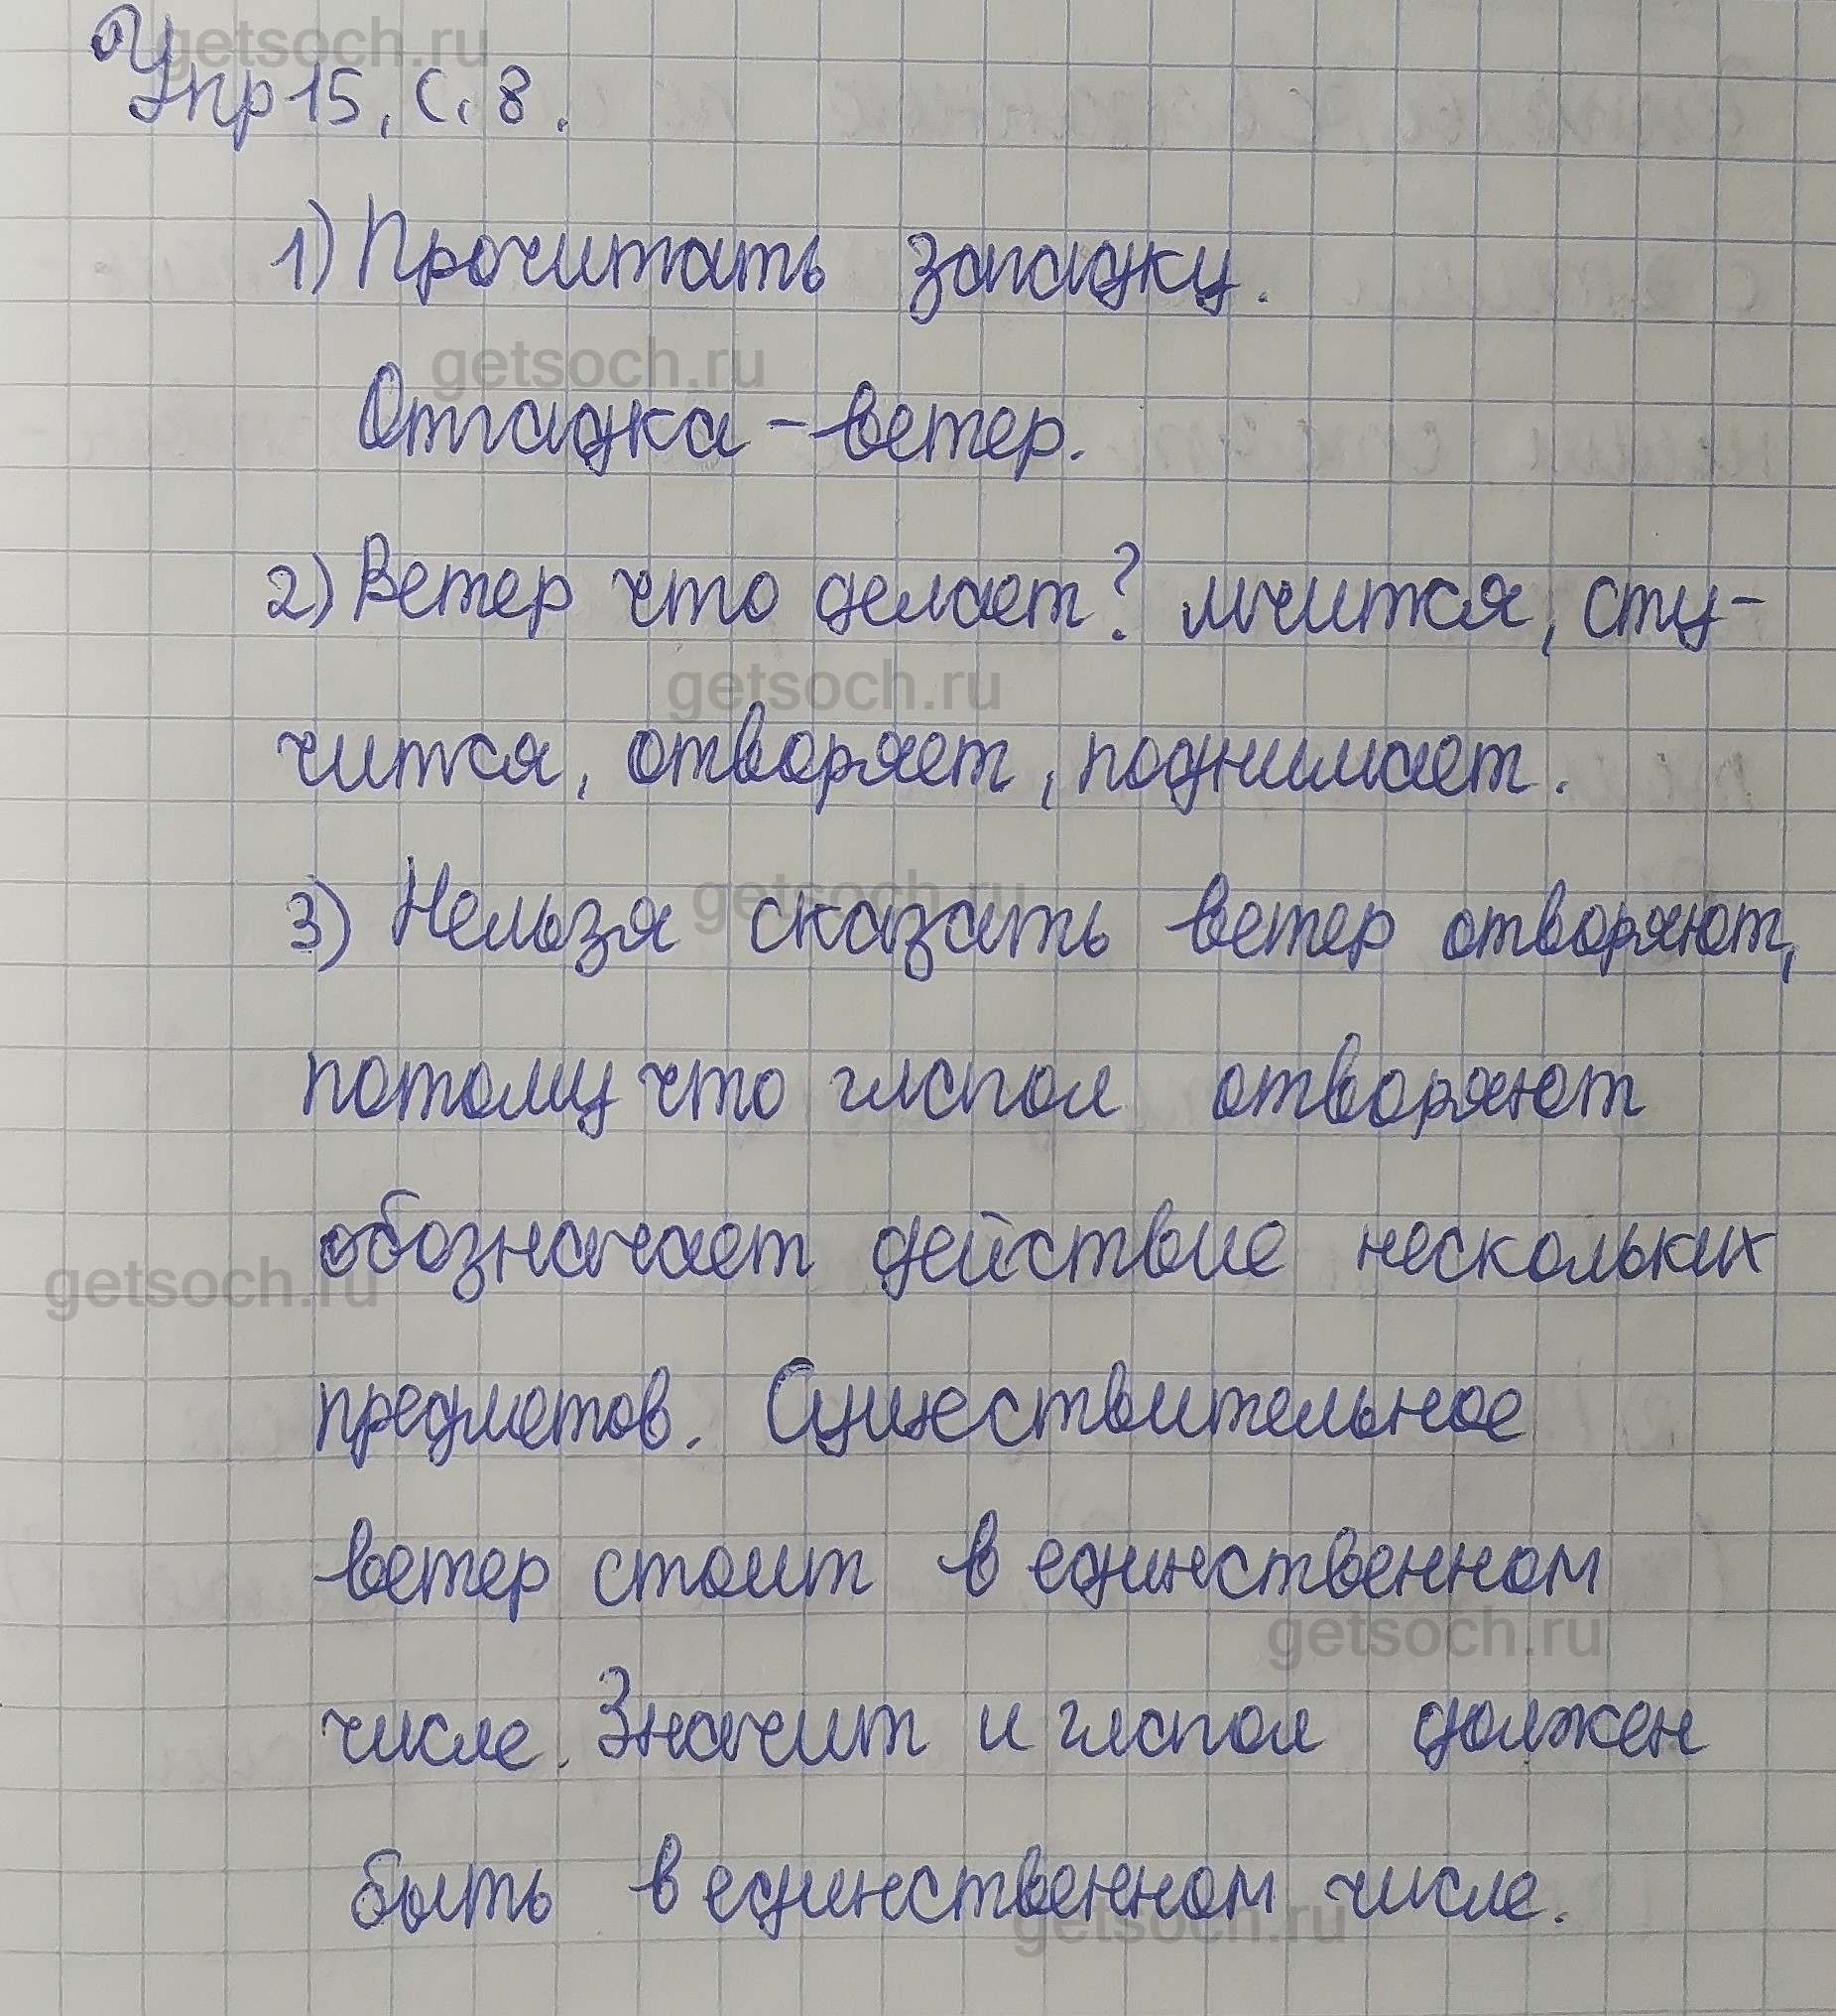 getsoch.ru
Упр 15, с. 8.
1) Прочитать загадку.
getsoch.ru
Отгадка - ветер.
2) Ветер что делает? мчится, сту-
getsoch.ru
чится, отворяет, поднимает.
getsoch.ru
3) Нельзя сказать ветер отворяют,
потому что глагол отворяют
обозначает действие нескольких
getsoch.ru
предметов. Существительное
ветер стоит в единственном
getsoch.ru
числе. Значит и глагол должен
быть в единственном числе.
getsoch.ru